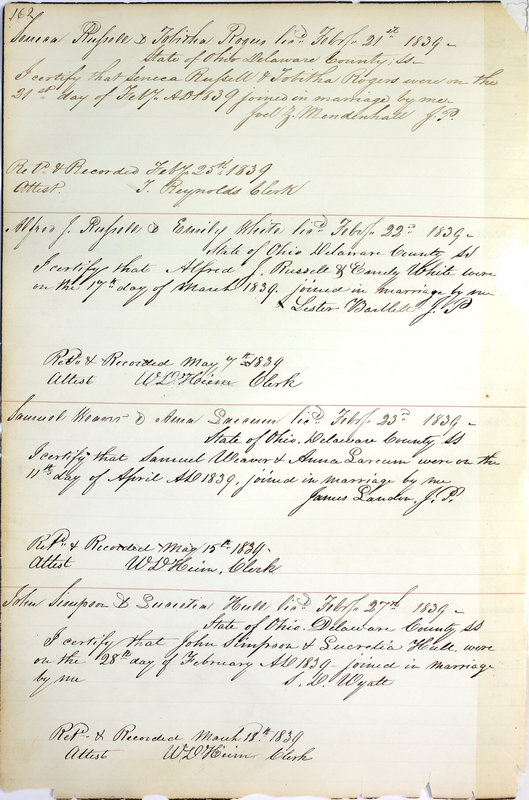 162
Seneca Russell & Tobitha Rogers licd. Feby. 21st 1839 -
State of Ohio Delaware County, Ss -
I certify that Seneca Russell & Tobitha Rogers were on the
21st day of Feby. AD 1839 joined in marriage by me
Joel Z. Mendenhall J.P.
Retd. & Recorded Feby. 25th 1839
Attest. T. Reynolds Clerk
Alfred J. Russell & Emily White licd. Feby. 22d 1839 -
State of Ohio Delaware County Ss
I certify that Alfred J. Russell & Emily White were
on the 17th day of March 1839. joined in marriage by me
Lester Bartlett J.P
Retd. & Recorded May 7th 1839
Attest W D Heim Clerk
Samuel & Anna licd. Feby. 23d 1839 -
State of Ohio. Delaware County Ss
I certify that Samuel Weaver & Anna Larcum were on the
11th day of April AD 1839. joined in marriage by me
James Landon, J.P.
Retd. & Recorded May 15th 1839.
Attest W D Heim, Clerk
John Simpson & Lucretia Hull licd. Feby. 27th 1839 -
State of Ohio. Delaware County Ss
I certify that John Simpson & Lucretia Hull, were
on the 28th day of February AD 1839 joined in marriage
by me S. D. Wyatt
Retd. & Recorded March 18th 1839
Attest W D Heim Clerk